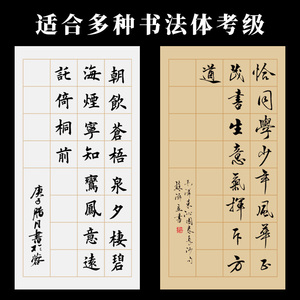 适合多种书法体考级
朝飲蒼梧泉夕棲碧
海煙寧知鸞鳳意遠
託倚桐前
庚子腊月書於
恰同學少年風華正
茂書生意氣揮斥方
遒
毛澤東沁園春長沙句